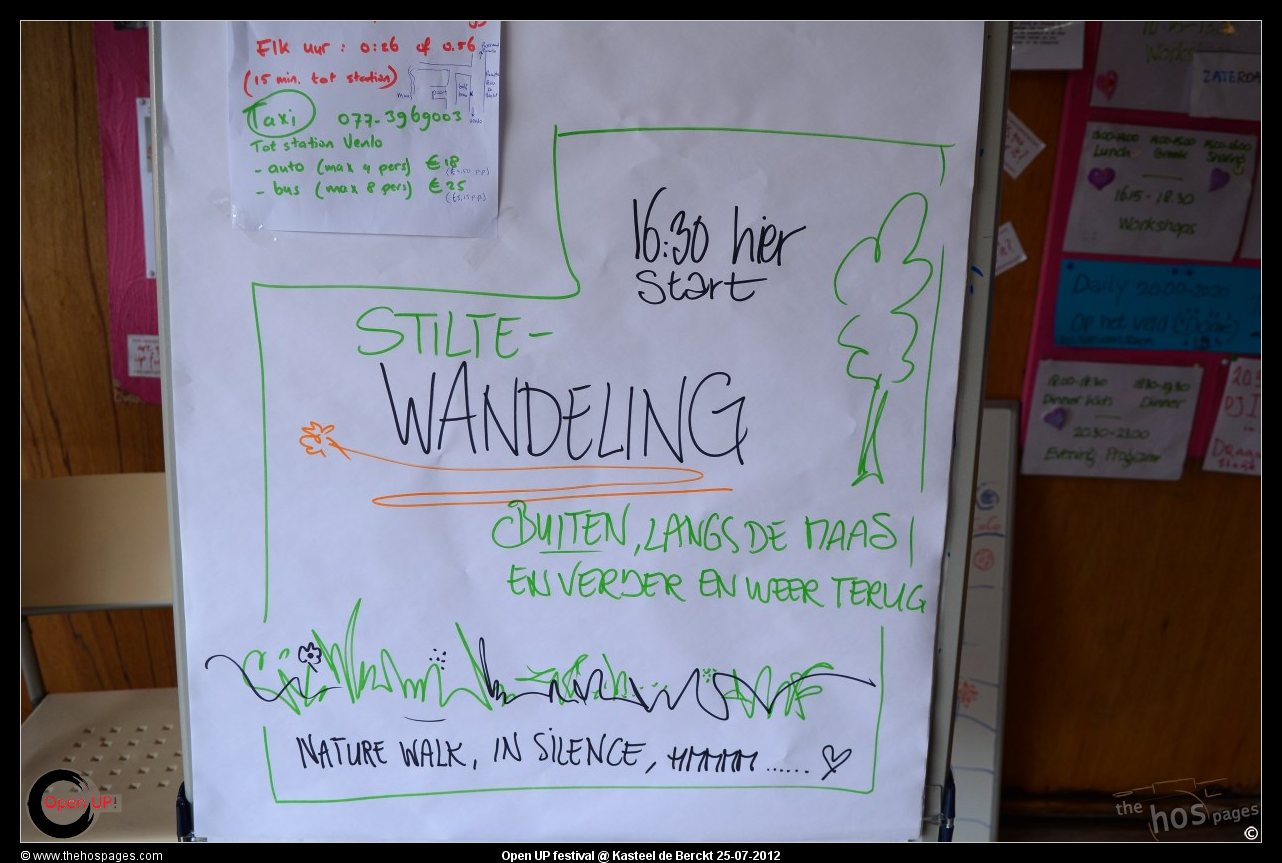 Elk uur : 0:26 of 0.56
(15 min. tot station)
Taxi 077-3969003
Tot station Venlo
- auto (max 4 pers) € 18
(€4,50 p.p)
- bus (max 8 pers) € 25
16:30 hier
start
STILTE-
WANDELING
BUITEN, LANGS DE MAAS
EN VERDER EN WEER TERUG
NATURE WALK, IN SILENCE, HMMMM ......
ZATERDA
Lunch
Sharing
16.15 - 18.30
Workshops
Daily 20.00-20.20
Op het veld (Dome)
18.00-18.30 18.30-19.30
Dinner kids Dinner
20.30-23.00
Evening Program
Open UP!
the hos pages
©
© www.thehospages.com
Open UP festival @ Kasteel de Berckt 25-07-2012